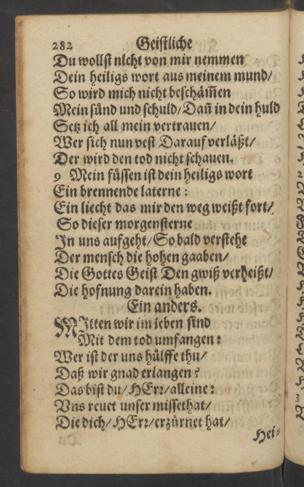 282 Geistliche
Du wollst nicht von mir nemmen
Dein heiligs wort aus meinem mund/
So wird mich nicht beschäm̃en
Mein sünd und schuld/ Dañ in dein huld
Setz ich all mein vertrauen/
Wer sich nun vest Darauf verläßt/
Der wird den tod nicht schauen.
9 Mein füssen ist dein heiligs wort
Ein brennende laterne:
Ein liecht das mir den weg weißt fort/
So dieser morgensterne
In uns aufgeht/ So bald versteht
Der mensch die hohen gaaben/
Die Gottes Geist Den gwiß verheißt/
Die hofnung darein haben.
Ein anders.
MItten wir im leben sind
Mit dem tod umfangen:
Wer ist der uns hülffe thu/
Daß wir gnad erlangen?
Das bist du/ HErr/ alleine:
Uns reuet unser missethat/
Die dich/ HErr/ erzürnet hat/
Hei-